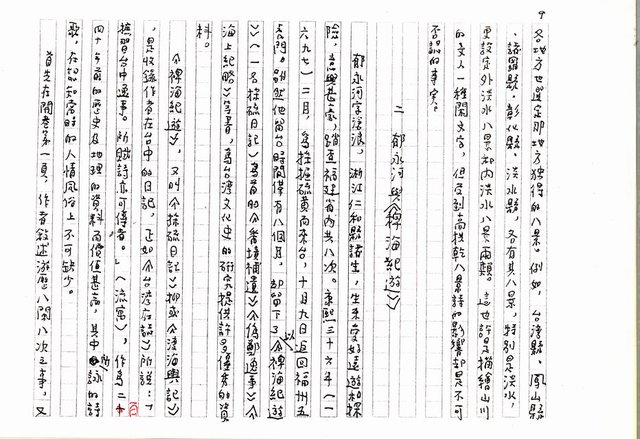 9
各地方也選定那地方獨得的八景。例如,台灣縣、鳳山縣
、諸羅縣、彰化縣、淡水縣,各有其八景,特別是淡水,
更設定外淡水八景和內淡水八景兩類。這也許是描繪山川
的文人一種閑文字,但受到高拱乾八景詩的影響却是不可
否認的事實。
二 郁永河與《稗海紀遊》
郁永河字滄浪,浙江仁和縣諸生,生來愛好遠遊和探
險,意興甚豪,踏查福建省內共八次。康熙三十六年(一
六九七)二月,為採硫黃而來台,十月九日返回福州五
虎門。雖然他留台時間僅有八個月,却留下了以《稗海紀遊
》(一名採硫日記)為首的《番境補遺》《偽鄭逸事》《
海上紀略》等書,為台灣文化史的研究提供許多優秀的資
料。
《稗海紀遊》,又叫《採硫日記》抑或《渡海輿記》
,是收錄作者在台中的日記,正如《台灣在話》所說:「
撫習台中逸事。所賦詩亦可傳者。」(流寓),作為二百
四十年前的歷史及地理的資料而價值甚高,其中所詠的詩
歌,在認知當時的人情風俗上不可缺少。
首先在開卷第一頁,作者敘述遊歷八閩八次之事,又